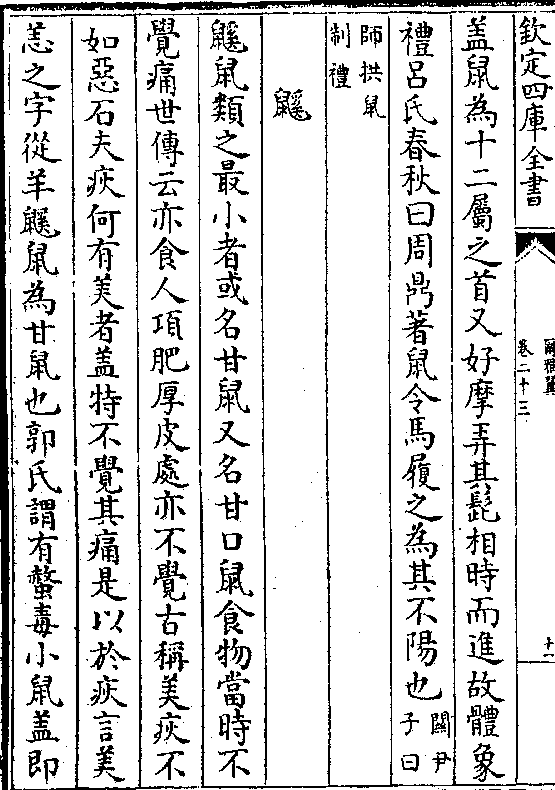 欽定四庫全書
爾雅翼
卷二十三
十一
盖鼠為十二屬之首又好摩弄其髭相時而進故體象
禮吕氏春秋曰周鼎著鼠令馬履之為其不陽也關尹子曰
師拱鼠制禮
鼷
鼷鼠類之最小者或名甘鼠又名甘口鼠食物當時不
覺痛世傳云亦食人項肥厚皮處亦不覺古稱美疢不
如惡石夫疢何有美者盖特不覺其痛是以於疢言美
恙之字從羊鼷鼠為甘鼠也郭氏謂有螫毒小鼠盖即